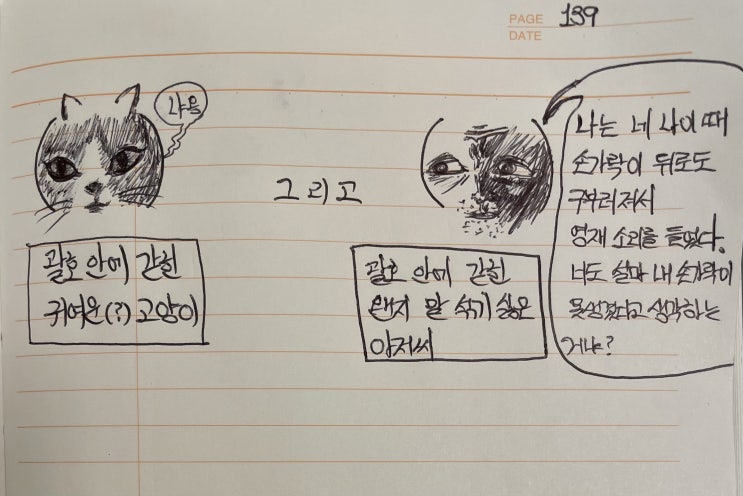 PAGE 139
DATE
냐옹
그리고
괄호 안에 갇힌
귀여운(?) 고양이
괄호 안에 갇힌
왠지 말 섞기 싫은
아저씨
나는 네 나이 때
손가락이 뒤로도
구부러져서
영재 소리를 들었다.
너도 설마 내 손가락이
못생겼다고 생각하는
거냐?